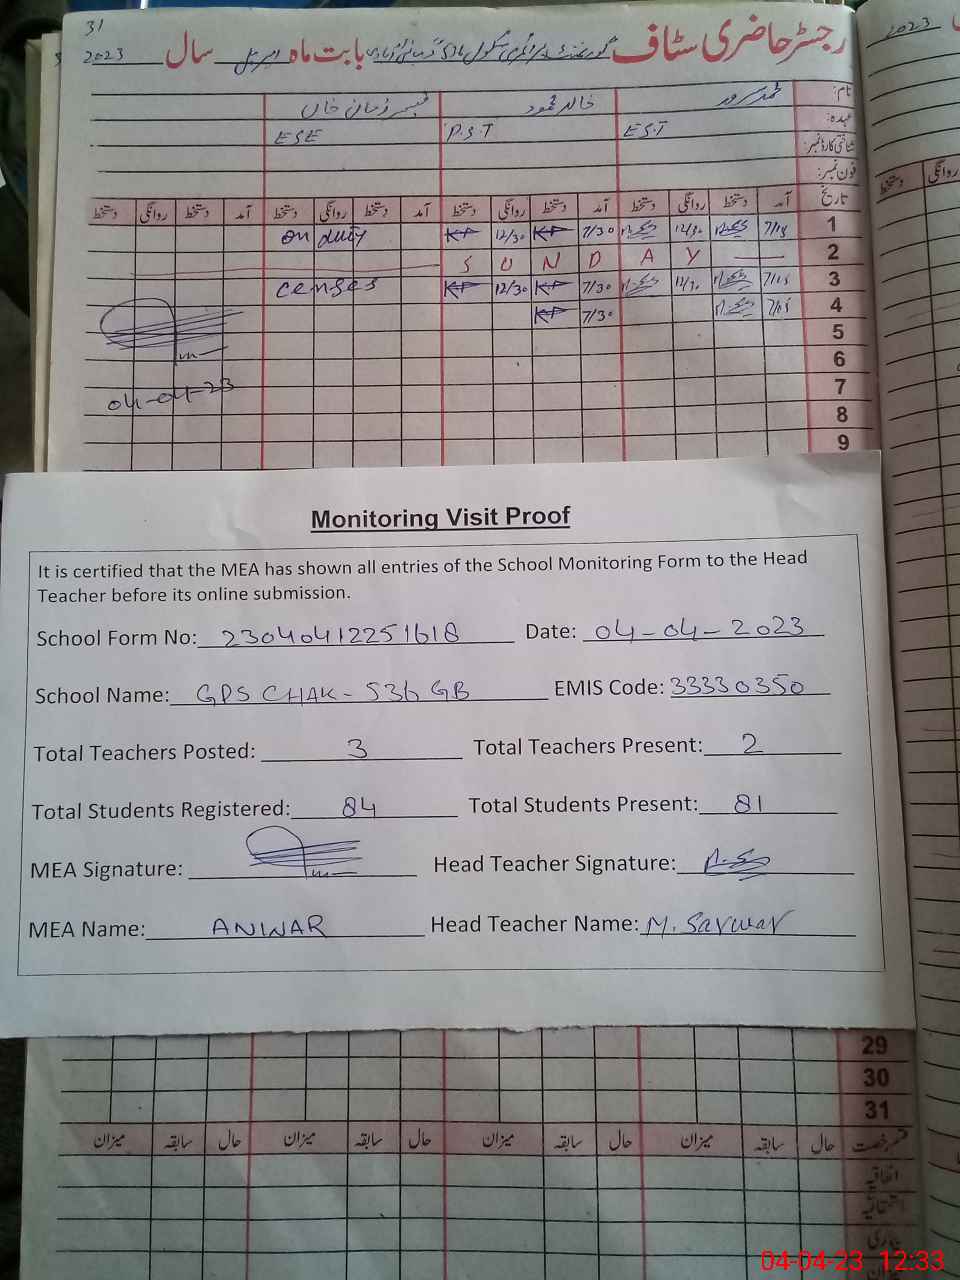 31
2023 رجسٹر حاضری سٹاف گورنمنٹ پرائمری سکول بابت ماہ اپریل سال 2023
نام: محمد سرور خالد محمود قیصر زمان خاں
عہدہ: EST P.S.T ESE
شناختی کارڈ نمبر:
فون نمبر:
تاریخ آمد دستخط روانگی دستخط آمد دستخط روانگی دستخط آمد دستخط روانگی دستخط آمد دستخط روانگی دستخط
دستخط روانگی
on duty 12/30 7/30 1
S U N D A Y 2
censes 12/30 7/30 3
7/30 4
5
6
04-04-23 7
8
9
Monitoring Visit Proof
It is certified that the MEA has shown all entries of the School Monitoring Form to the Head
Teacher before its online submission.
School Form No: 23040412251618 Date: 04-04-2023
School Name: GPS CHAK-536 GB EMIS Code: 33330350
Total Teachers Posted: 3 Total Teachers Present: 2
Total Students Registered: 84 Total Students Present: 81
MEA Signature: Head Teacher Signature:
MEA Name: ANWAR Head Teacher Name: M. Sarwar
29
30
31
قسم رخصت حال سابقہ میزان حال سابقہ میزان حال سابقہ میزان حال سابقہ میزان
اتفاقیہ
استحقاقیہ
04-04-23 12:33